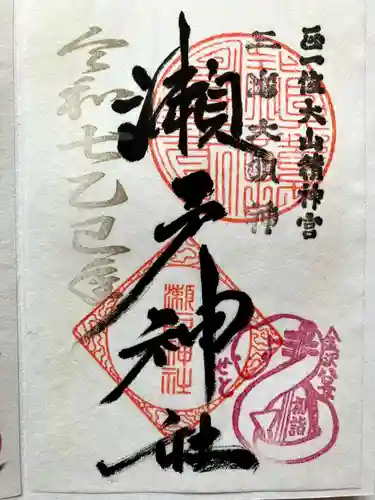 正一位大山積神宮
三島大明神
瀬戸神社
令和七乙巳年
瀬戸神社
せと
金沢八景
初詣